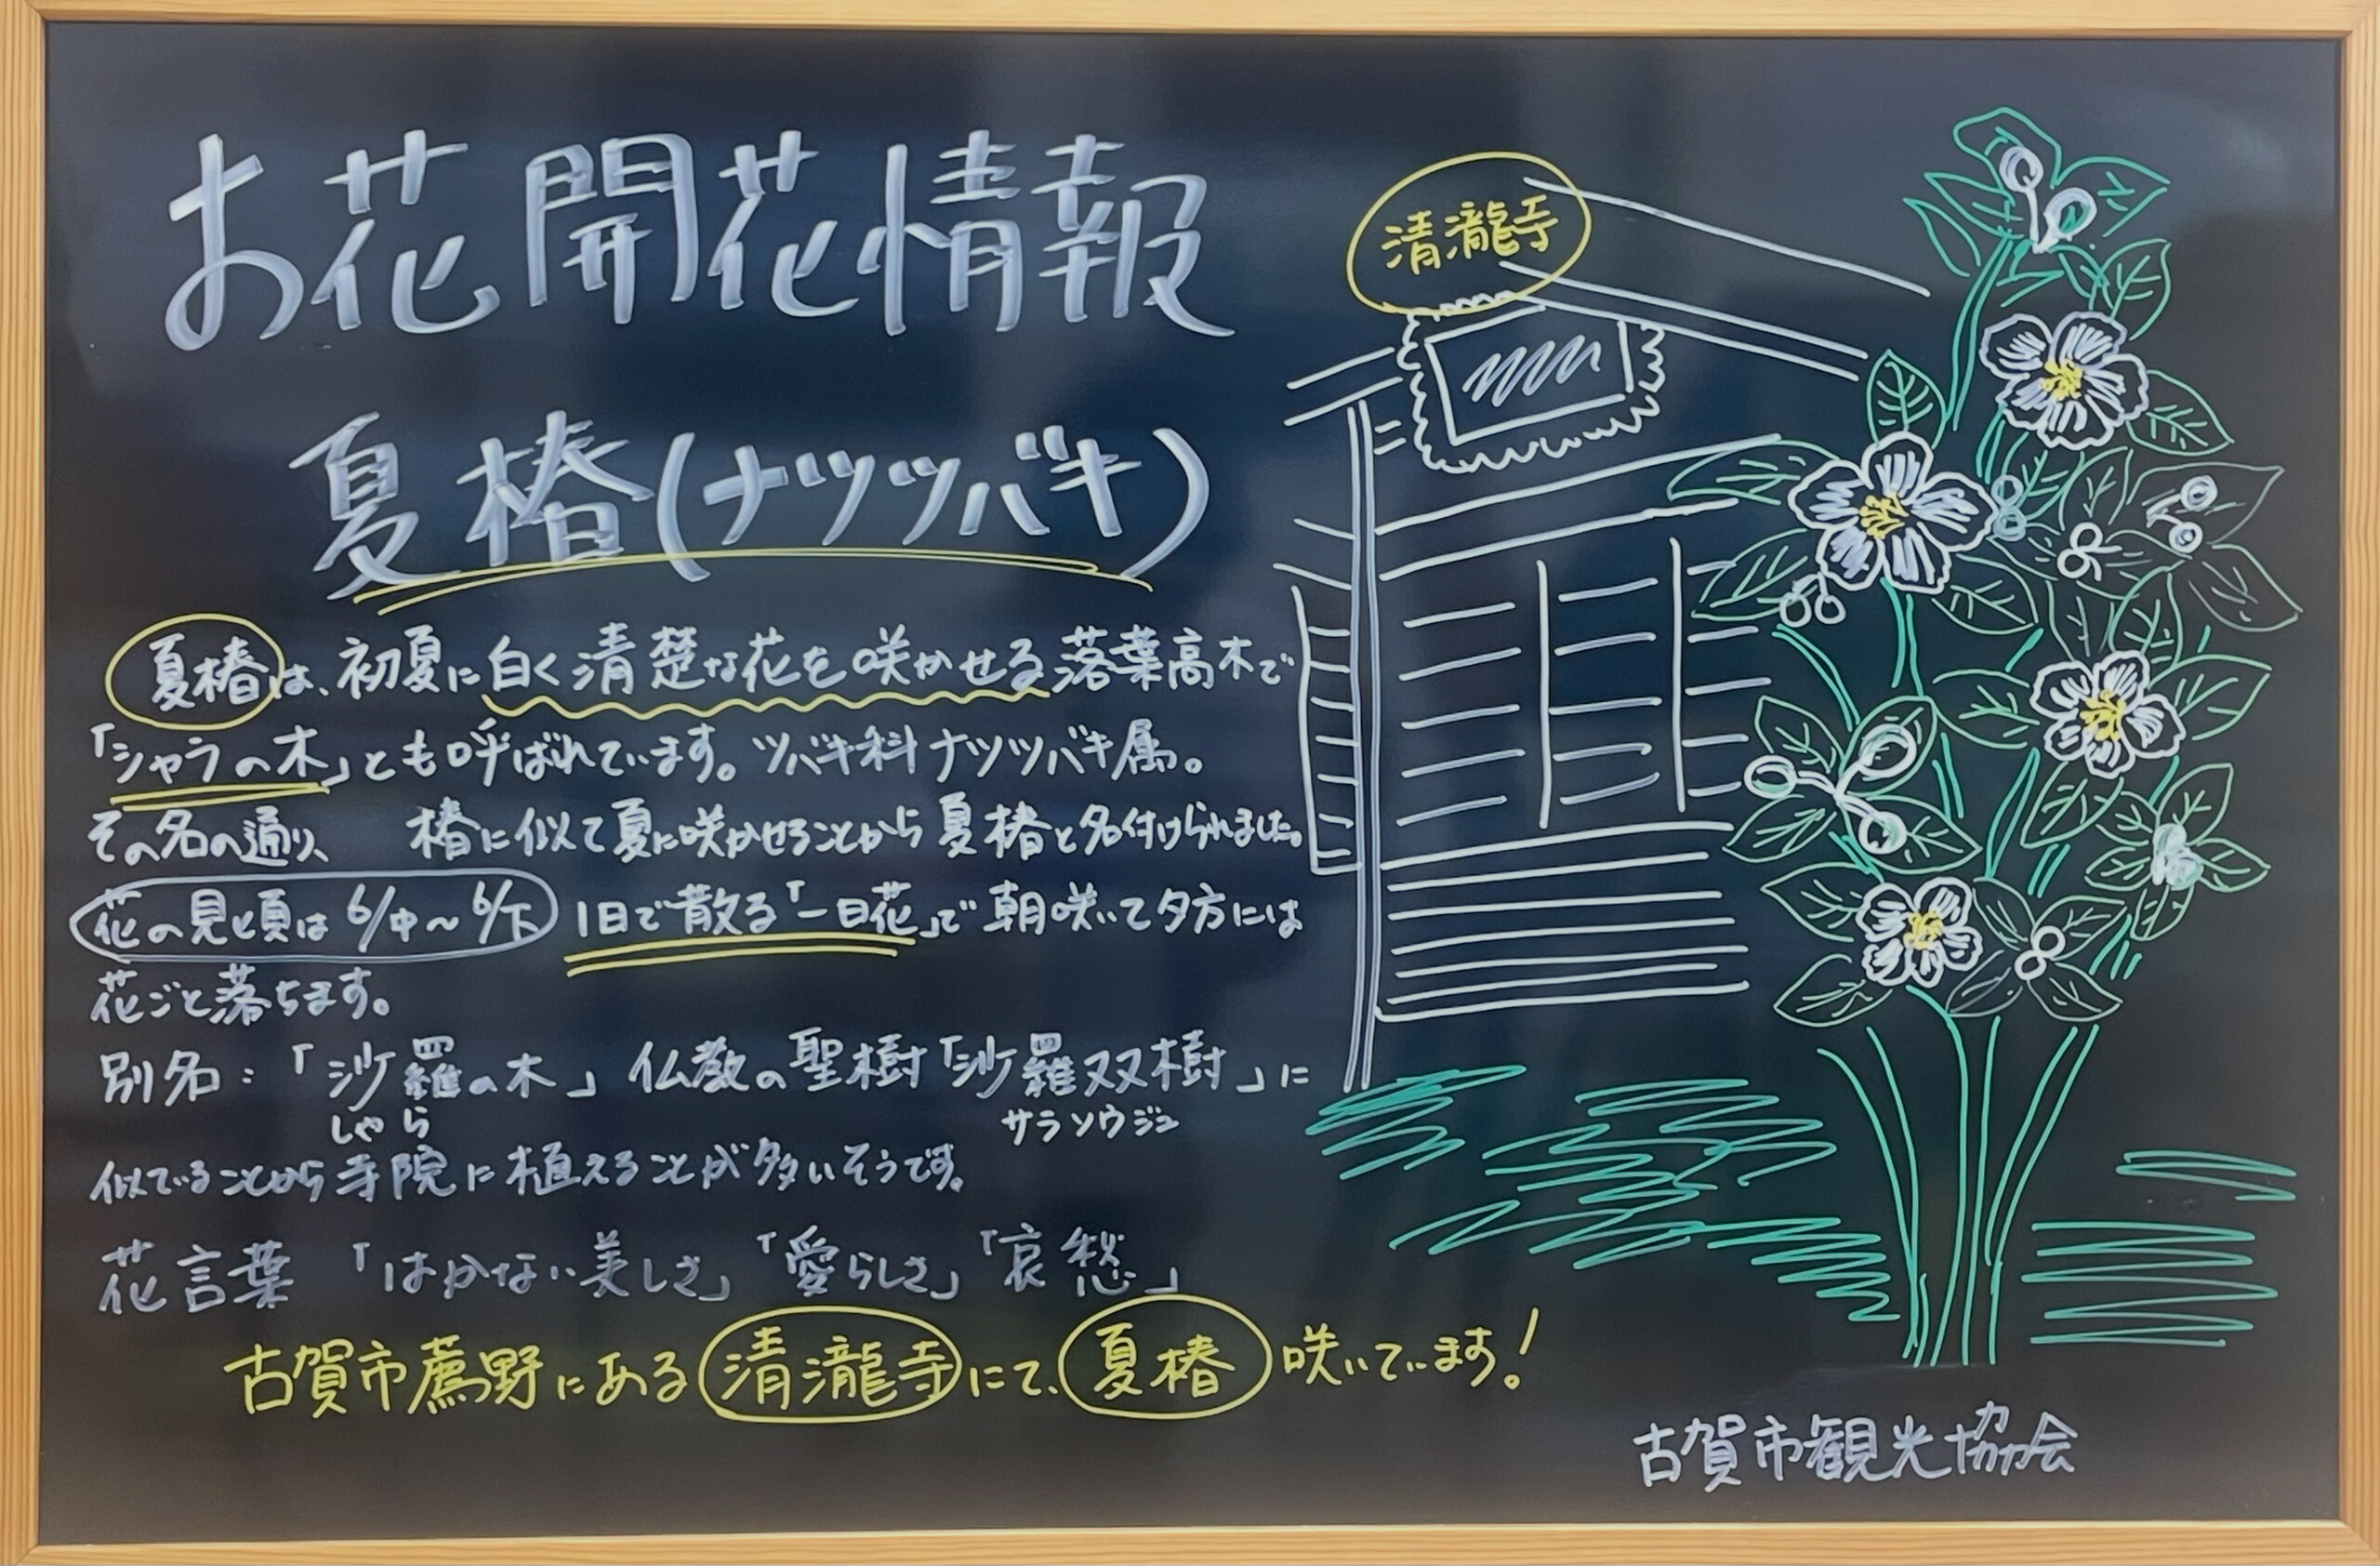 お花開花情報
夏椿(ナツツバキ)
清瀧寺
夏椿は、初夏に白く清楚な花を咲かせる落葉高木で
「シャラの木」とも呼ばれています。ツバキ科ナツツバキ属。
その名の通り、 椿に似て夏に咲かせることから夏椿と名付けられました。
花の見と頃は6/中〜6/下 1日で散る「一日花」で朝咲いて夕方には
花ごと落ちます。
別名:「沙羅の木」仏教の聖樹「沙羅双樹」に
しゃら サラソウジュ
似ていることから寺院に植えることが多いそうです。
花言葉 「はかない美しさ」「愛らしさ」「哀愁」
古賀市薦野にある清瀧寺にて、夏椿咲いています!
古賀市観光協会